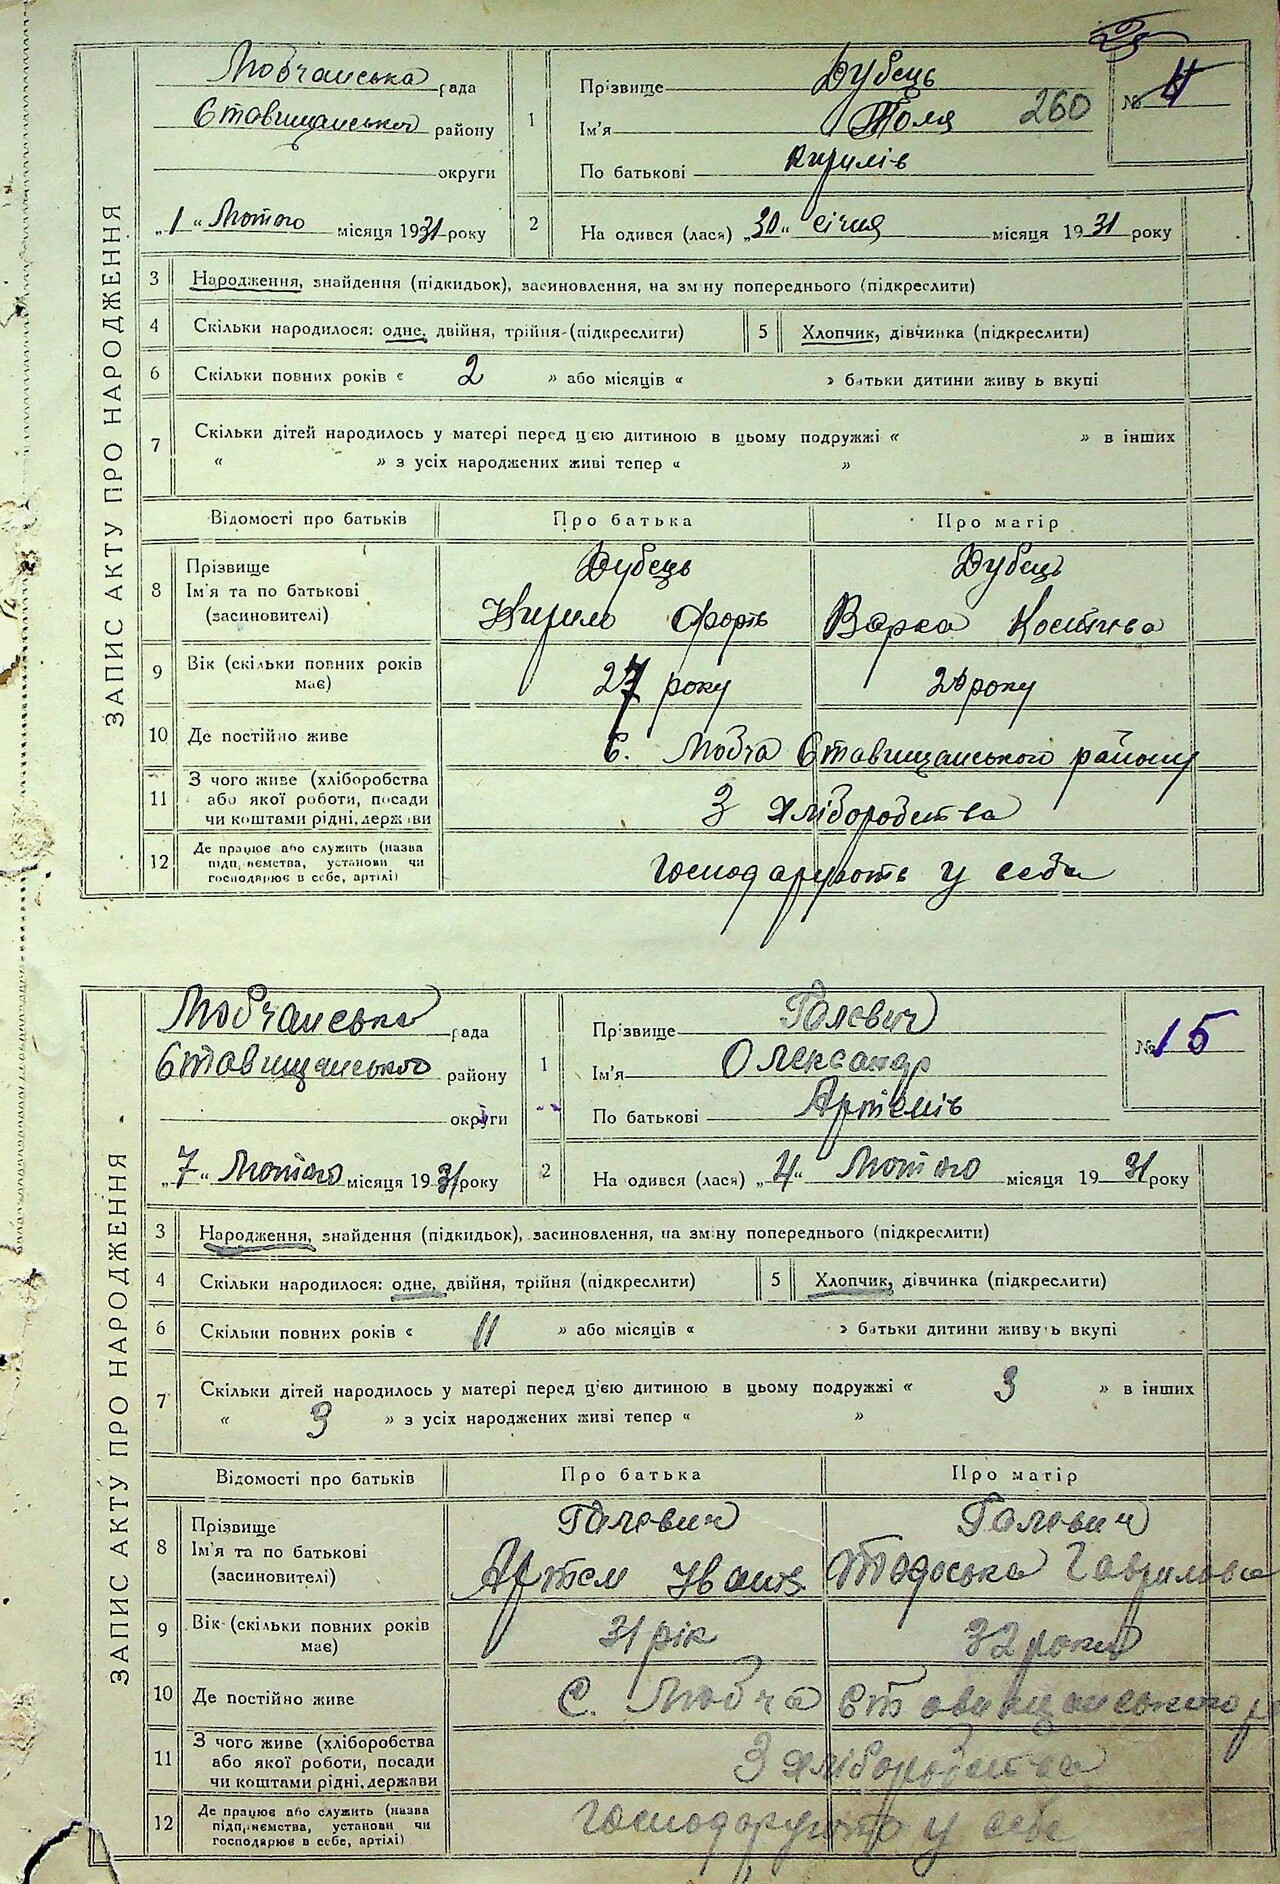 ЗАПИС АКТУ ПРО НАРОДЖЕННЯ
Любчанська рада
Ставищанського району
округи
„1“ Лютого місяця 1931 року
1
Прізвище Дубець
Ім'я Толя 260
По батькові Кирилів
№ 4
2
На одився (лася) „30“ січня місяця 1931 року
3 Народження, знайдення (підкидьок), засиновлення, на зм ну попереднього (підкреслити)
4 Скільки народилося: одне, двійня, трійня (підкреслити) 5 Хлопчик, дівчинка (підкреслити)
6 Скільки повних років « 2 » або місяців « » батьки дитини живу ь вкупі
7 Скільки дітей народилось у матері перед ц'єю дитиною в цьому подружжі « » в інших
« » з усіх народжених живі тепер « »
Відомості про батьків Про батька Про матір
8 Прізвище Дубець Дубець
Ім'я та по батькові Кирило Варка
(засиновителі)
9 Вік (скільки повних років має) 27 року року
10 Де постійно живе С. Любча Ставищанського району
11 З чого живе (хліборобства
або якої роботи, посади
чи коштами рідні, держави З хліборобства
12 Де працює або служить (назва
підп,иємства, установи чи
господарює в себе, артілі) господарують у себе
ЗАПИС АКТУ ПРО НАРОДЖЕННЯ
Любчанська рада
Ставищанського району
округи
„7“ Лютого місяця 1931 року
1
Прізвище Галевич
Ім'я Олександр
По батькові Артемів
№ 15
2
На одився (лася) „4“ Лютого місяця 1931 року
3 Народження, знайдення (підкидьок), засиновлення, на зм ну попереднього (підкреслити)
4 Скільки народилося: одне, двійня, трійня (підкреслити) 5 Хлопчик, дівчинка (підкреслити)
6 Скільки повних років « 11 » або місяців « » батьки дитини живуть вкупі
7 Скільки дітей народилось у матері перед ц'єю дитиною в цьому подружжі « 3 » в інших
« 3 » з усіх народжених живі тепер « »
Відомості про батьків Про батька Про матір
8 Прізвище Галевич Галевич
Ім'я та по батькові Артем Іванів Тодоська Гаврилова
(засиновителі)
9 Вік (скільки повних років має) 31 рік 32 роки
10 Де постійно живе С. Любча Ставищанського р
11 З чого живе (хліборобства
або якої роботи, посади
чи коштами рідні, держави З хліборобства
12 Де працює або служить (назва
підп,иємства, установи чи
господарює в себе, артілі) господарують у себе